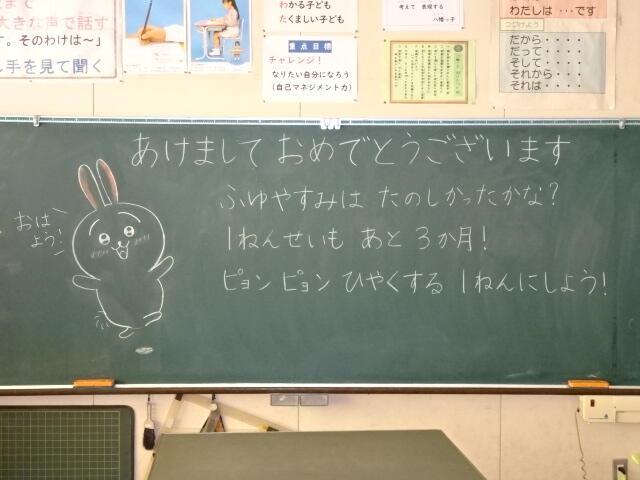 大きな声で話す
す。そのわけは～」
手を見て聞く
わかる子ども
たくましい子ども
重点目標
チャレンジ！
なりたい自分になろう
（自己マネジメント力）
考えて 表現する
八幡っ子
わたしは・・・です
つづけよう
だから・・・・
だって・・・・
そして・・・・
それから・・・・
それは・・・・
あけまして おめでとうございます
ふゆやすみは たのしかったかな？
1ねんせいも あと 3か月！
ピョン ピョン ひやくする 1ねんにしよう！
おは
よう！